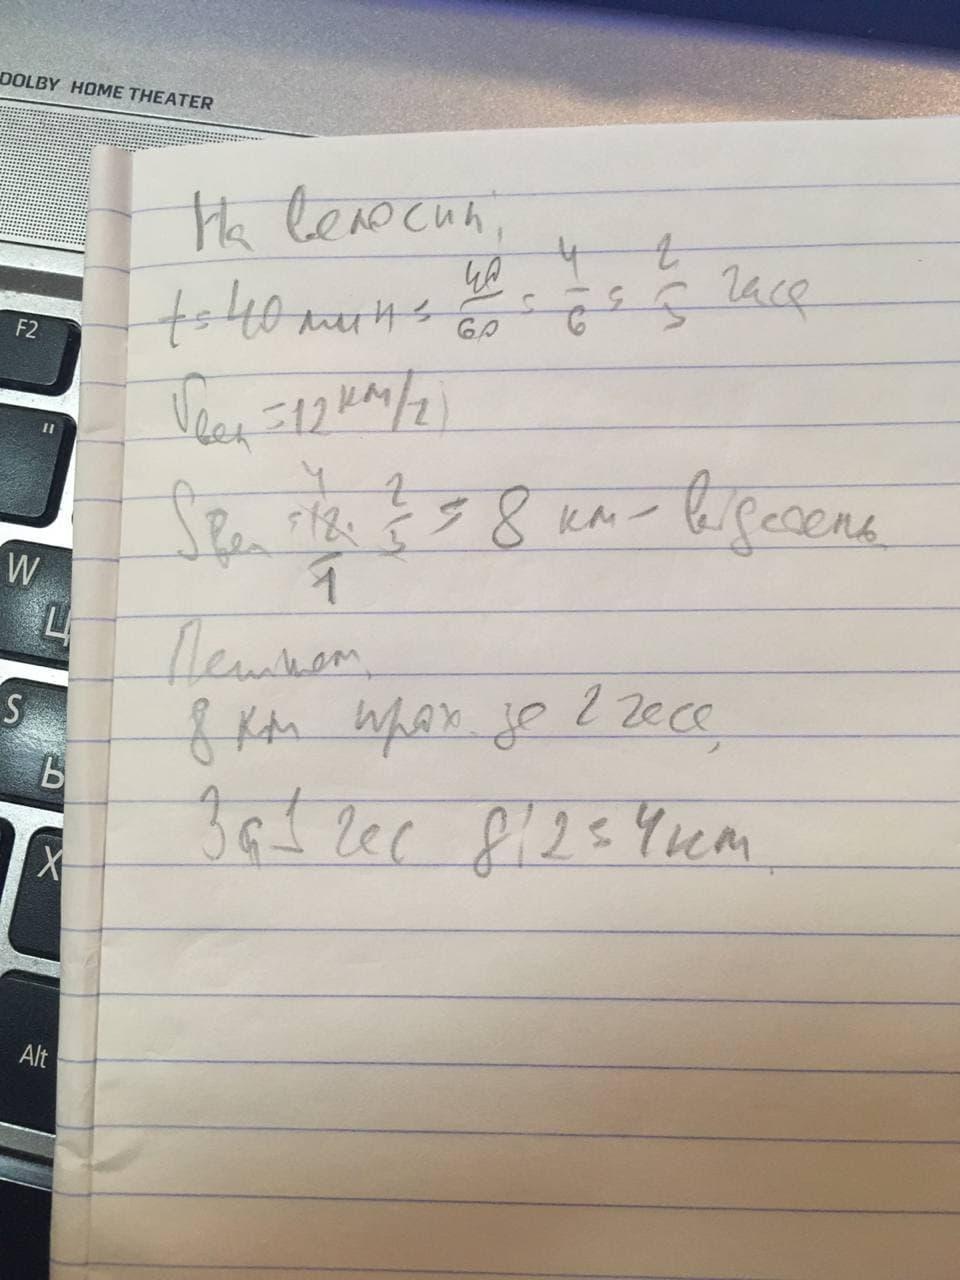 DOLBY HOME THEATER
F2
"
W
Ц
S
Ы
X
Alt
На велосип,
t = 40 мин = 40/60 = 4/6 = 2/3 часа
Vвел = 12 км/ч
Sвел = 12/1 · 2/3 = 8 км - відстань
Пешком,
8 км прох. за 2 часа,
За 1 час 8:2 = 4 км.